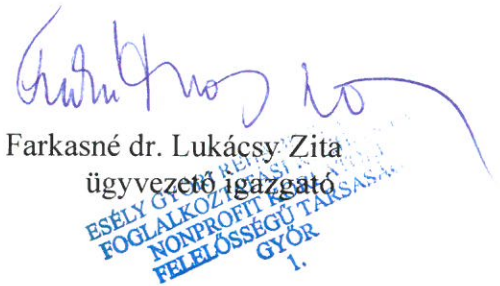 Farkasné dr. Lukácsy Zita
ügyvezető igazgató
ESÉLY GYŐRI
FOGLALKOZTATÁSI
NONPROFIT
FELELŐSSÉGŰ TÁRSASÁG
GYŐR
1.